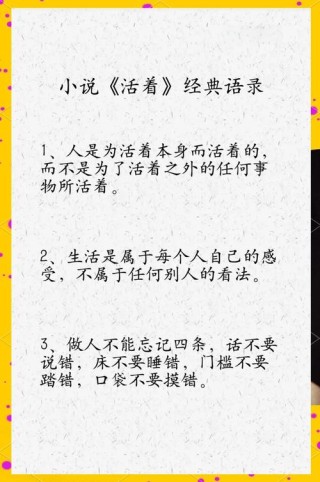 小说《活着》经典语录
1、人是为活着本身而活着的，
而不是为了活着之外的任何事
物所活着。
2、生活是属于每个人自己的感
受，不属于任何别人的看法。
3、做人不能忘记四条，话不要
说错，床不要睡错，门槛不要
踏错，口袋不要摸错。